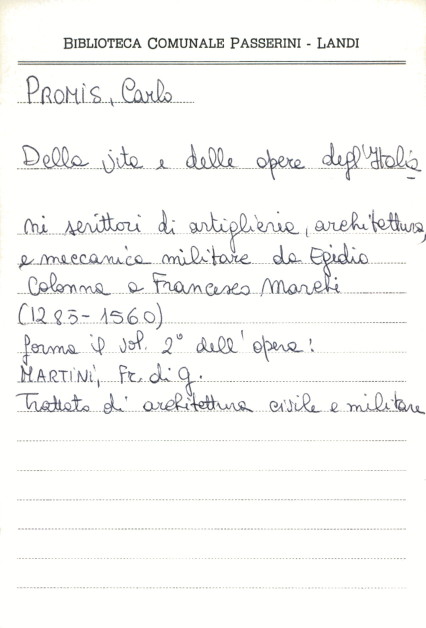 BIBLIOTECA COMUNALE PASSERINI - LANDI
PROMIS, Carlo
Della vita e delle opere degl'Italia
ni scrittori di artiglieria, architettura,
e meccanica militare da Egidio
Colonna a Francesco Marchi
(1285-1560)
forma il vol. 2° dell'opera:
MARTINI, Fr. di G.
Trattato di architettura civile e militare